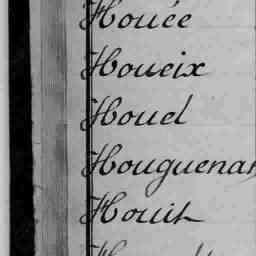 Houée
Houeix
Houel
Houguenan
Houit